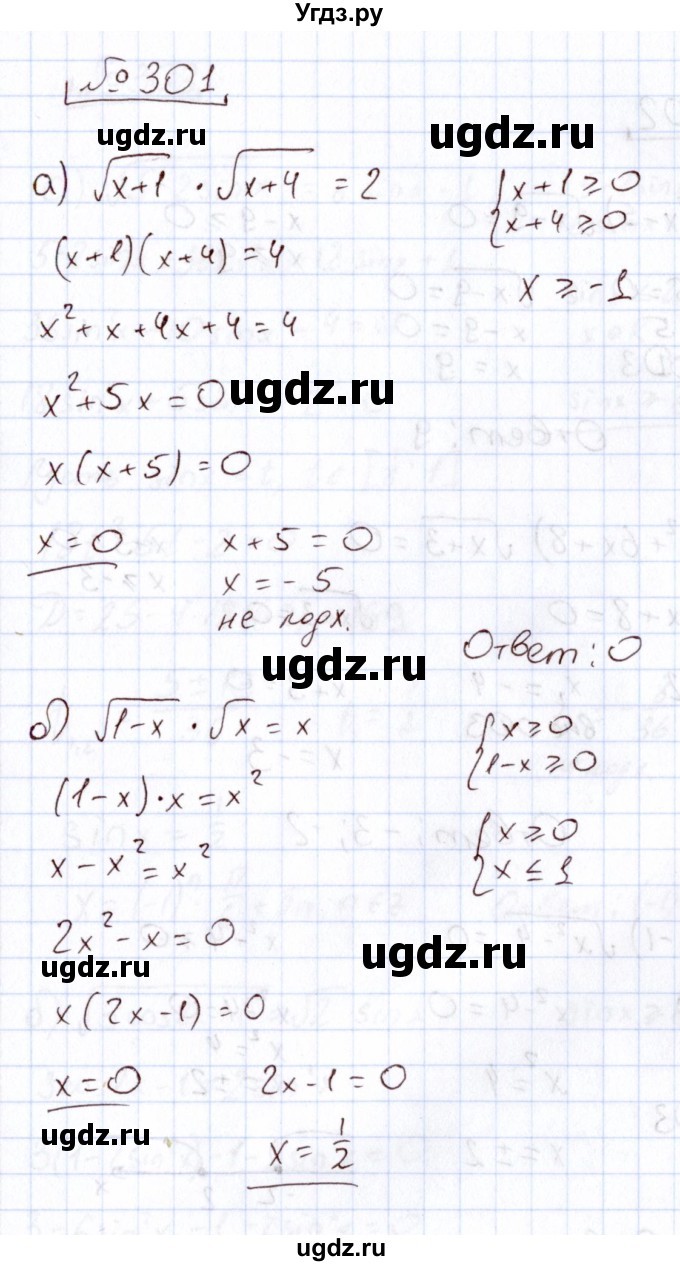 Угдз.ру
№301
ugdz.ru ugdz.ru
а) √x+1 · √x+4 = 2 {x+1 ≥ 0
{x+4 ≥ 0
(x+1)(x+4) = 4
x ≥ -1
x² + x + 4x + 4 = 4
x² + 5x = 0
ugdz.ru
x(x+5) = 0
x = 0 x+5 = 0
x = -5
не подх.
Ответ: 0
ugdz.ru
б) √1-x · √x = x {x ≥ 0
{1-x ≥ 0
(1-x)·x = x²
{x ≥ 0
x - x² = x² {x ≤ 1
2x² - x = 0
ugdz.ru ugdz.ru
x(2x-1) = 0
x = 0 2x-1 = 0
ugdz.ru
x = 1/2
ugdz.ru